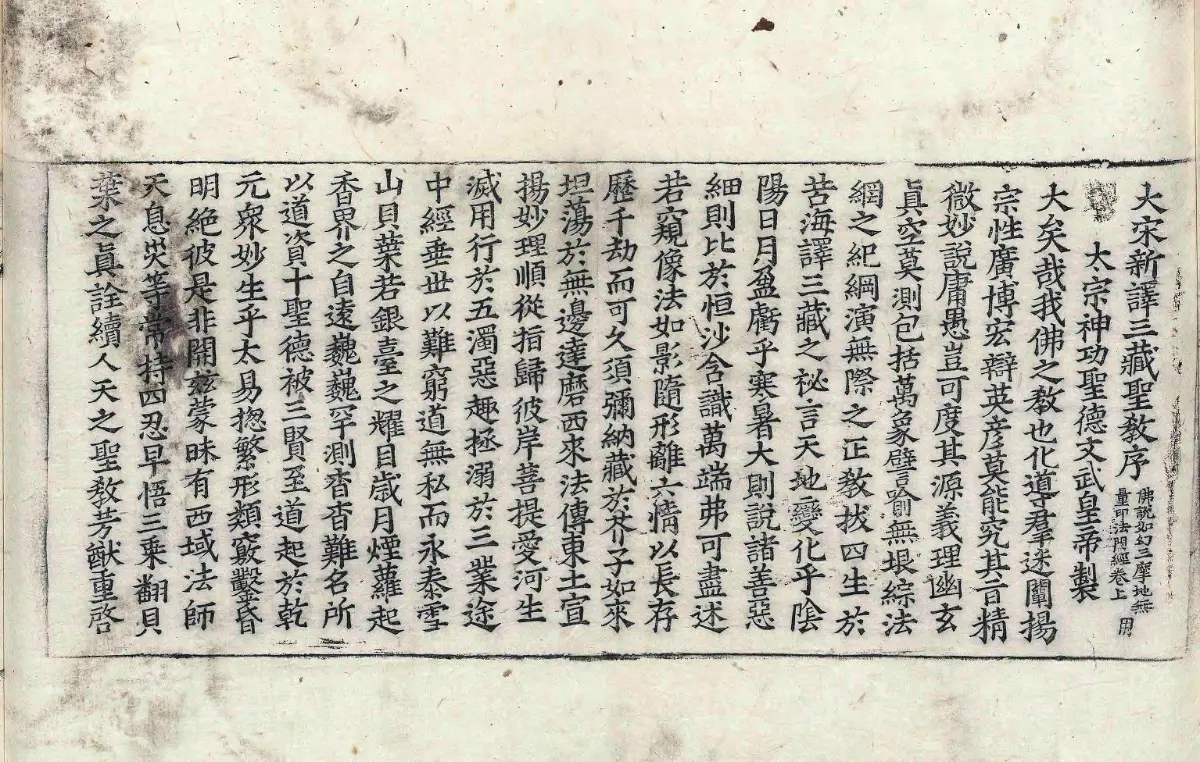 大宋新譯三藏聖教序
佛說如幻三摩地無
量印法門經卷上 用
太宗神功聖德文武皇帝製
大矣哉我佛之教也化導羣迷闡揚
宗性廣博宏辯英彥莫能究其旨精
微妙說庸愚豈可度其源義理幽玄
真空莫測包括萬象譬喻無垠綜法
網之紀綱演無際之正教拔四生於
苦海譯三藏之祕言天地變化乎陰
陽日月盈虧乎寒暑大則說諸善惡
細則比於恒沙含識萬端弗可盡述
若窺像法如影隨形離六情以長存
歷千劫而可久須彌納藏於芥子如來
坦蕩於無邊達磨西來法傳東土宣
揚妙理順從指歸彼岸菩提愛河生
滅用行於五濁惡趣拯溺於三業途
中經垂世以難窮道無私而永泰雪
山貝葉若銀臺之耀目歲月煙蘿起
香界之自遠巍巍罕測杳杳難名所
以道資十聖德被三賢至道起於乾
元衆妙生乎太易揔繁形類竅鑿昏
明絕彼是非開茲蒙昧有西域法師
天息災等常持四忍早悟三乘翻貝
葉之眞詮續人天之聖教芳猷重啓